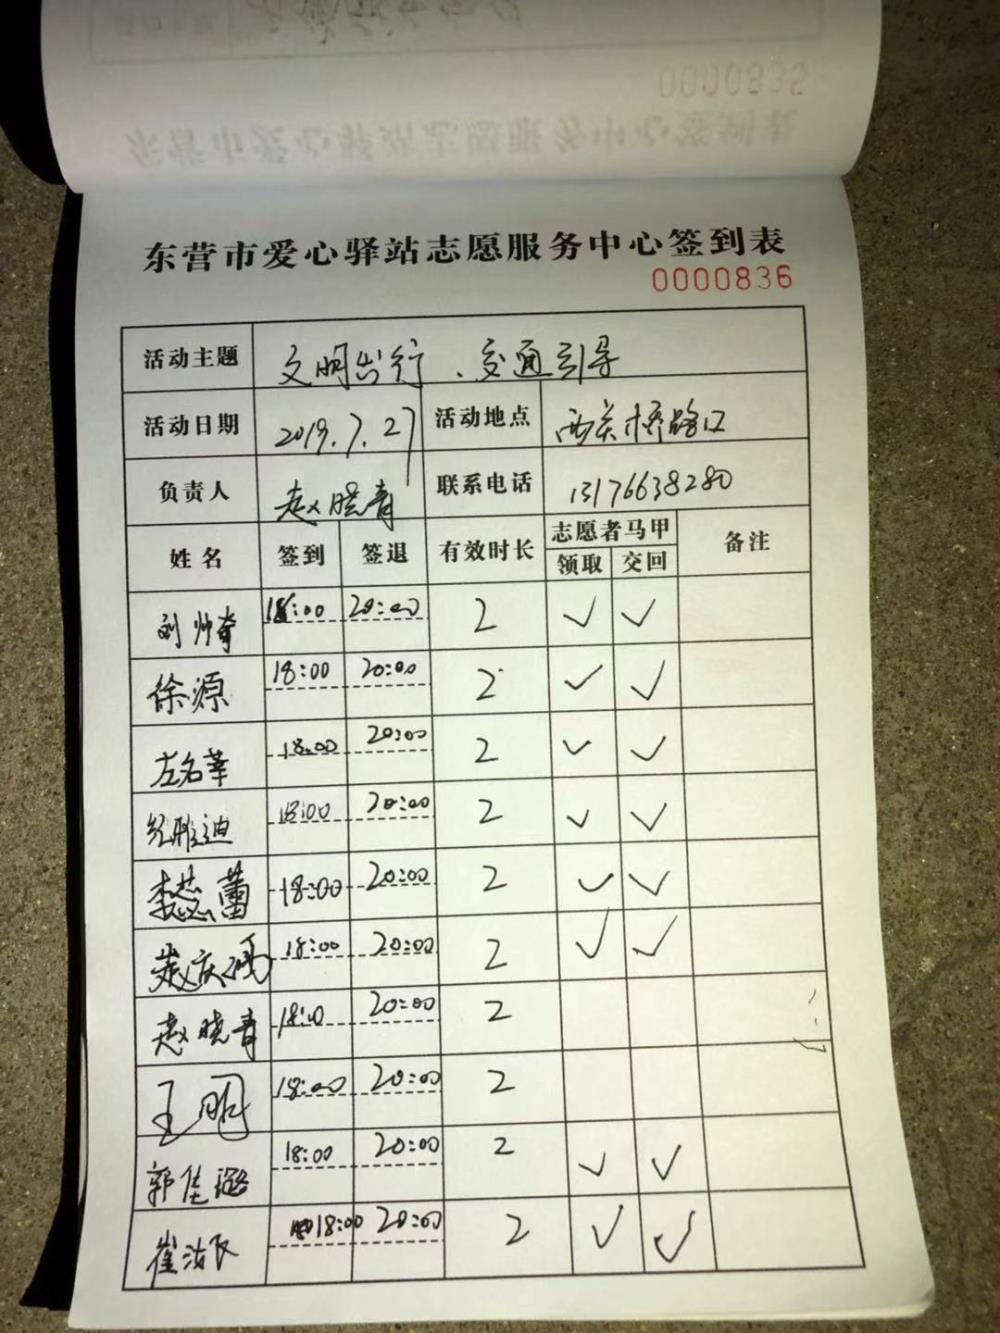 东营市爱心驿站志愿服务中心签到表
0000836
活动主题 文明出行、交通引导
活动日期 2019.7.27 活动地点 西关桥路口
负责人 赵晓青 联系电话 13176638280
姓名 签到 签退 有效时长 志愿者马甲 领取 交回 备注
刘帅奇 18:00 20:00 2 ✓ ✓
徐源 18:00 20:00 2 ✓ ✓
左名莘 18:00 20:00 2 ✓ ✓
雅迪 18:00 20:00 2 ✓ ✓
李蕊蕾 18:00 20:00 2 ✓ ✓
18:00 20:00 2 ✓ ✓
赵晓青 18:00 20:00 2
王明 18:00 20:00 2
郭佳璐 18:00 20:00 2 ✓ ✓
崔 18:00 20:00 2 ✓ ✓